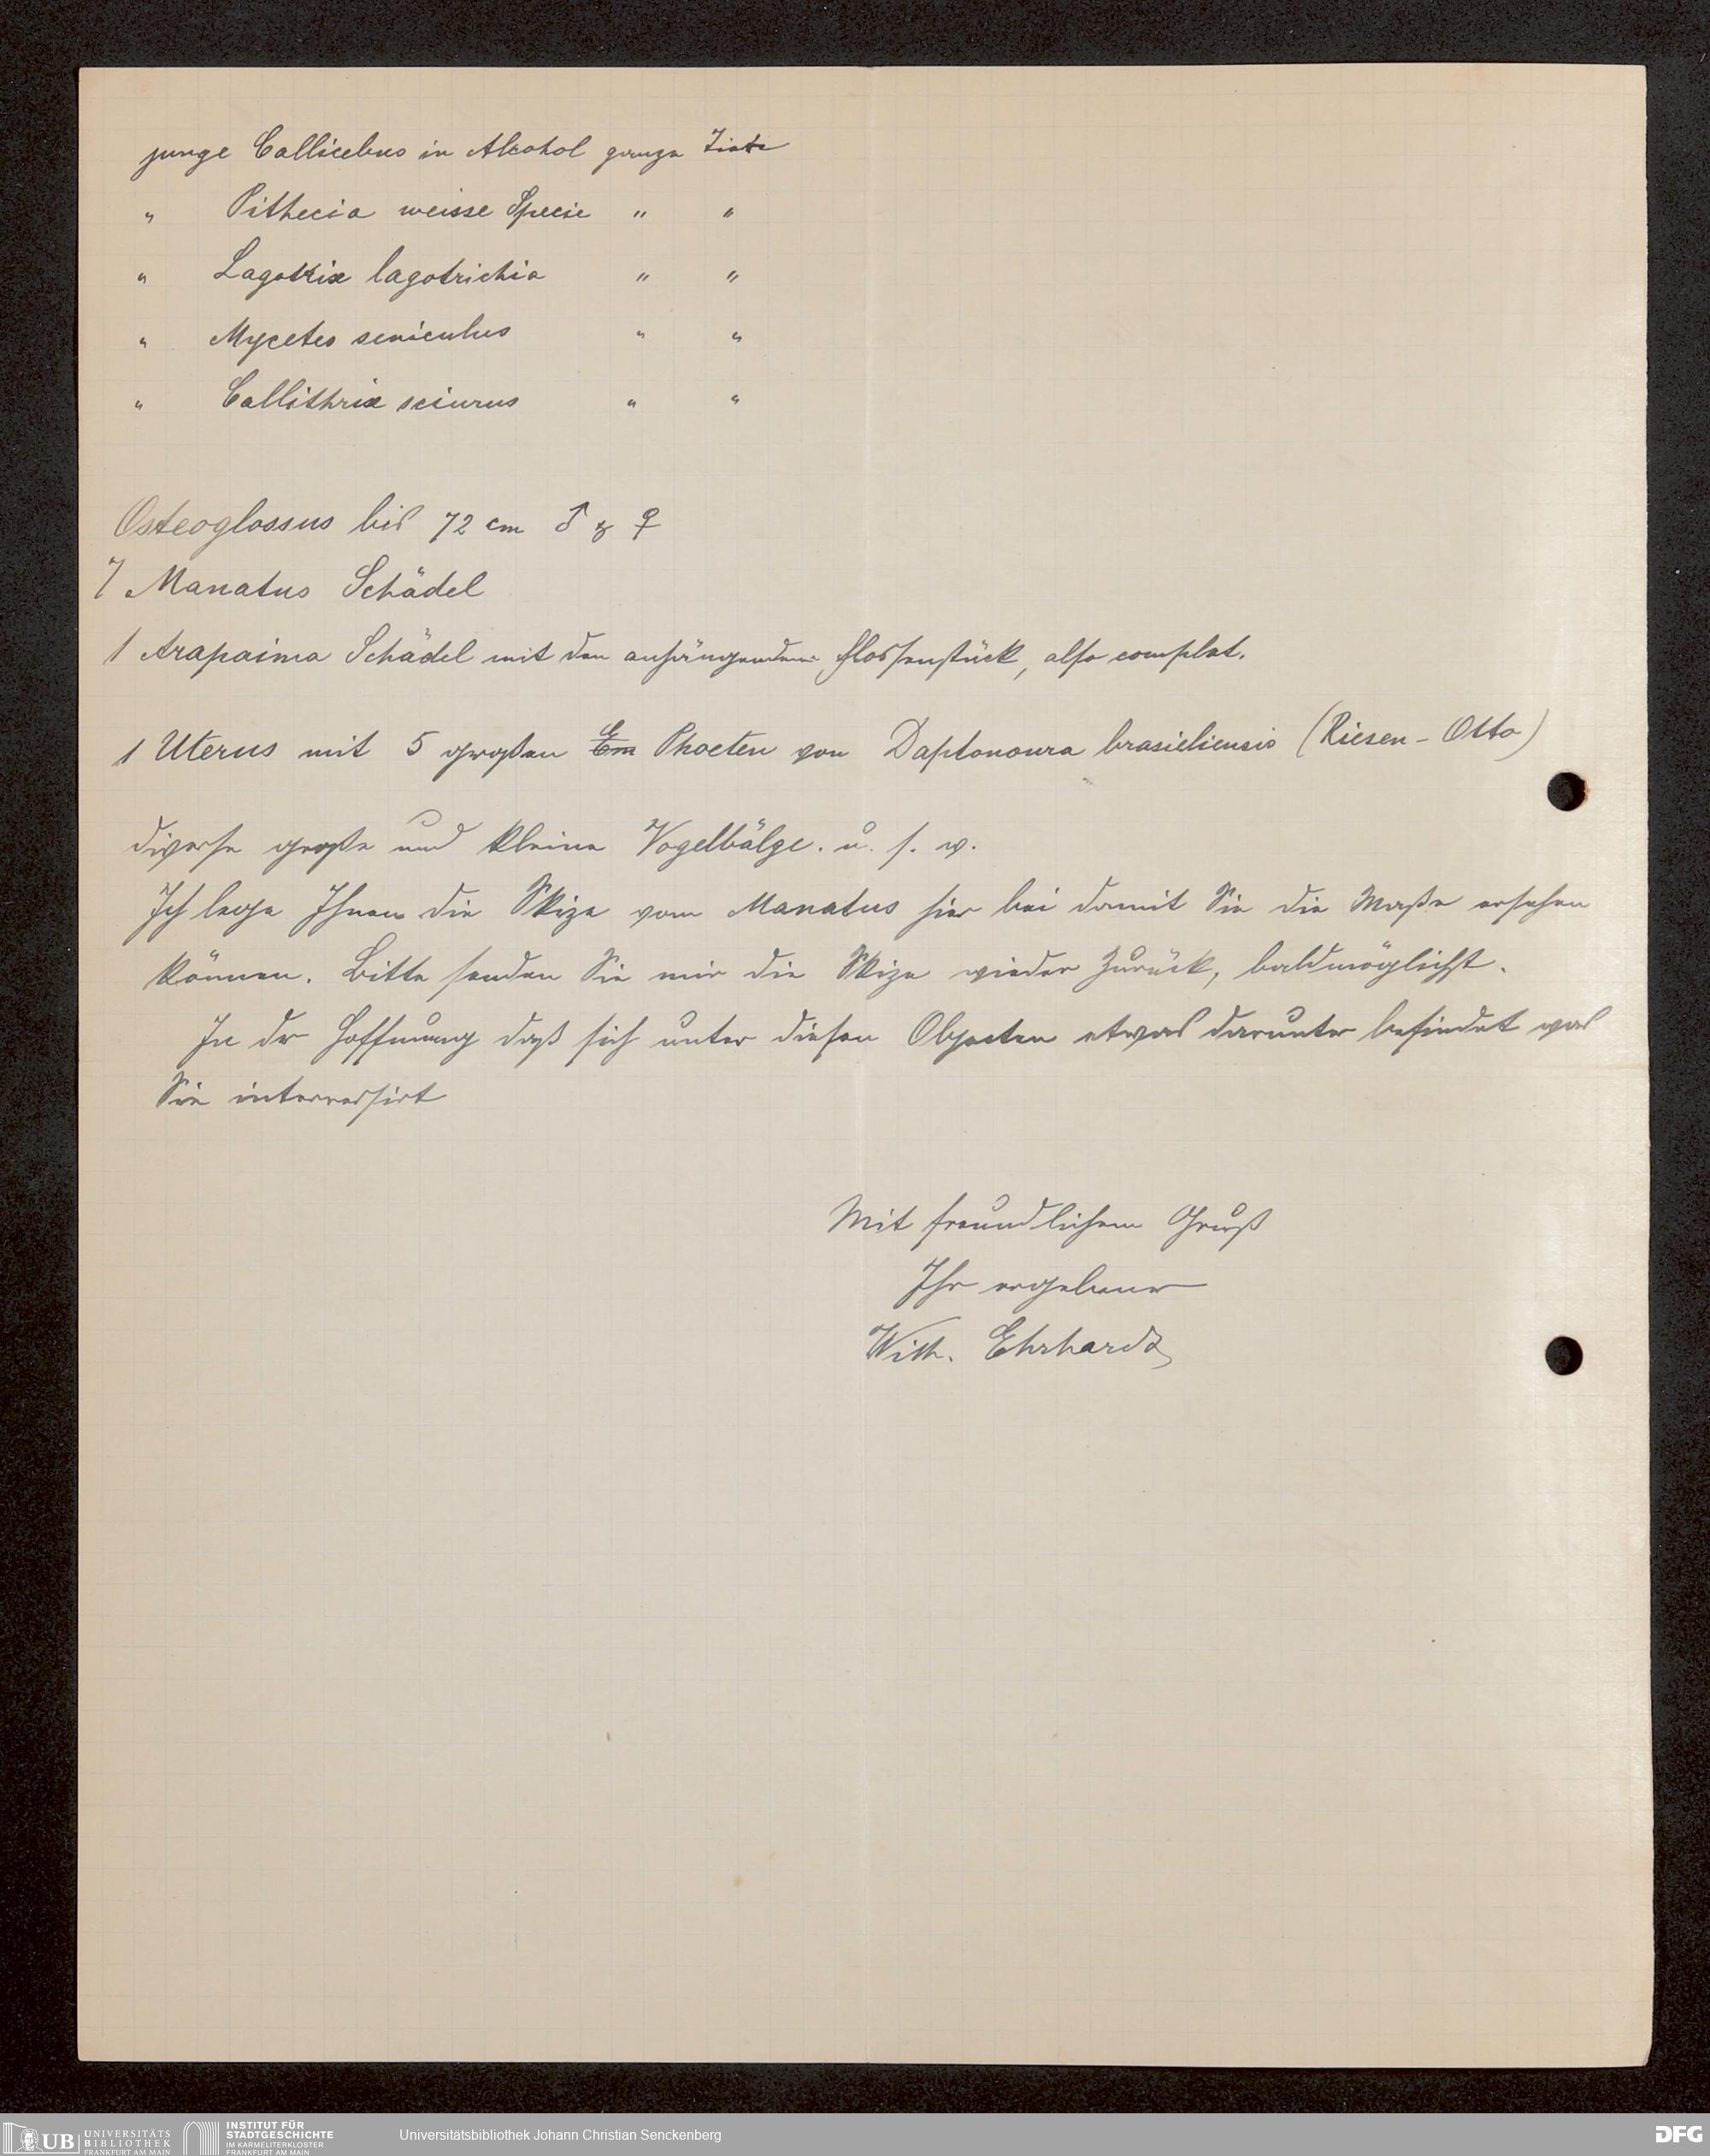 junge Callicebus in Alcohol ganze
" Pithecia weisse Specie " "
" Lagotrix lagotrichia " "
" Mycetes seniculus " "
" Callithrix sciurus " "
Osteoglossus bis 72 cm ♂ & ♀
7 Manatus Schädel
1 Arapaima Schädel mit den anhängendem Flossenstück, also complet.
1 Uterus mit 5 großen Phoeten von Daptonoura brasieliensis (Riesen-Otto)
diverse große und kleine Vogelbälge. u. s. w.
Ich lege Ihnen die Skize vom Manatus hier bei damit Sie die Maße ersehen
können. Bitte senden Sie mir die Skize wieder zurück, baldmöglichst.
In der Hoffnung daß sich unter diesen Objecten etwas darunter befindet was
Sie interressirt
Mit freundlichem Gruß
Ihr ergebener
Wilh. Ehrhardt
UB UNIVERSITÄTS
BIBLIOTHEK
FRANKFURT AM MAIN
INSTITUT FÜR
STADTGESCHICHTE
IM KARMELITERKLOSTER
FRANKFURT AM MAIN
Universitätsbibliothek Johann Christian Senckenberg
DFG